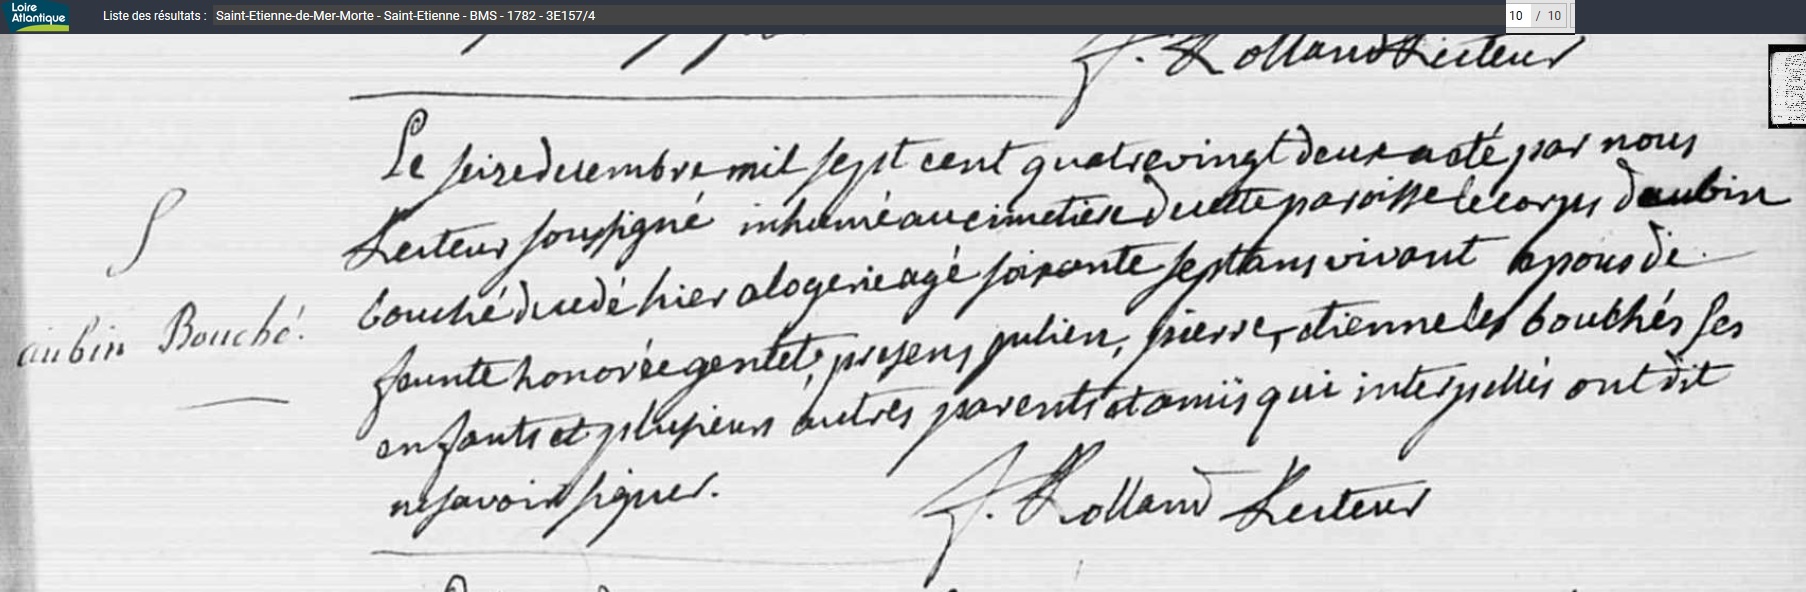 Loire
Atlantique
Liste des résultats : Saint-Etienne-de-Mer-Morte - Saint-Etienne - BMS - 1782 - 3E157/4
10 / 10
f. Rolland Recteur
Le seize decembre mil sept cent quatre vingt deux a eté par nous
Recteur soussigné inhumé au cimetiere de cette paroisse le corps d'aubin
bouché decedé hier a logerie agé soixante sept ans vivant epous de
feunte honorée gentet, presens julien, pierre, etienne les bouchés ses
enfants et plusieurs autres parents et amiis qui interpellés ont dit
ne savoir signer.
f. Rolland Recteur
S
aubin Bouché.